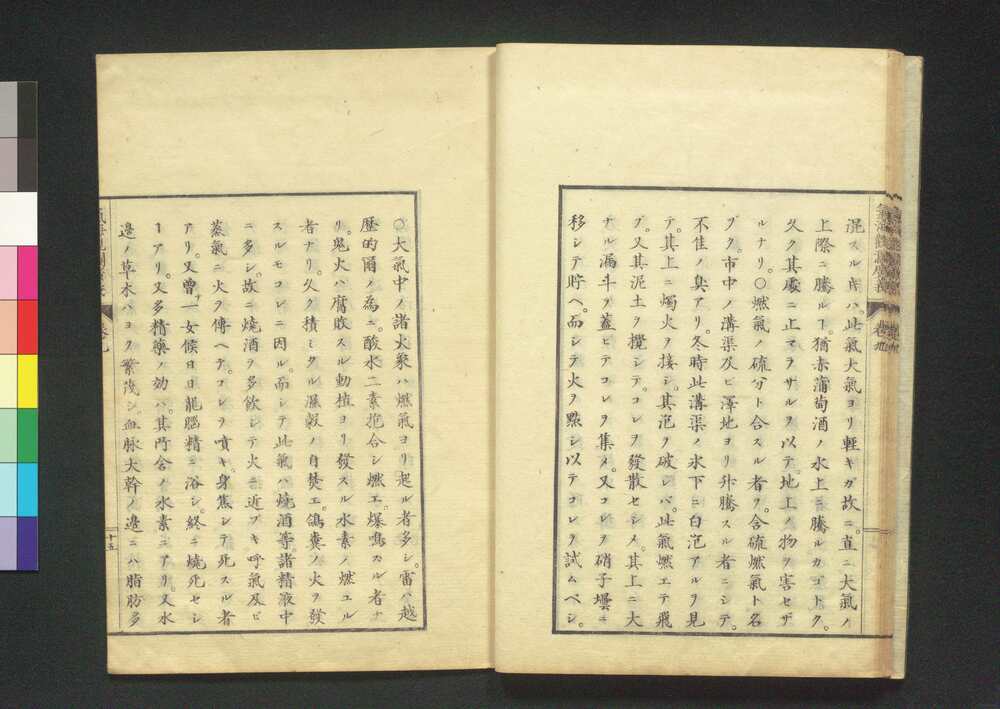 混スル𪜈ハ此氣大氣ヨリ輕キガ故ニ直ニ大氣ノ
上際ニ騰ルヿ猶赤蒲萄酒ノ水上ニ騰ルガゴトク
久ク其處ニ止マラザルヲ以テ地上ノ物ヲ害セザ
ルナリ。〇燃氣ノ硫分ト合スル者ヲ含硫燃氣ト名
ヅク。市中ノ溝渠及ビ澤地ヨリ升騰スル者ニシテ。
不佳ノ臭アリ。冬時此溝渠ノ氷下ニ白泡アルヲ見
テ。其上ニ燭火ヲ接シ。其泡ヲ破シバ。此氣燃エテ飛
ブ。又其泥土ヲ攪シテ。コレヲ發散セシメ。其上ニ大
ナル漏斗ヲ蓋ヒテコレヲ集メ。又コレヲ硝子壜ニ
移シテ貯ヘ。而シテ火ヲ點シ以テコレヲ試ムベシ。
〇大氣中ノ諸火象ハ燃氣ヨリ起ル者多シ。雷ハ越
歴的爾ノ為ニ。酸水二素抱合シ燃エ。爆鳴スル者ナ
リ。鬼火ハ腐敗スル動植ヨリ發スル水素ノ燃ユル
者ナリ。久ク積ミタル濕穀ノ自焚エ。鴿糞ノ火ヲ發
スルモコレニ因ル。而シテ此氣ハ燒酒等諸精液中
ニ多シ。故ニ燒酒ヲ多飲シテ火ニ近ヅキ呼氣及ビ
蒸氣ニ火ヲ傳ヘテ。コレヲ噴キ。身焦シテ死スル者
アリ。又曽テ一女候日日龍腦精ニ浴シ。終ニ燒死セシ
ヿアリ。又多精藥ノ効ハ。其所含ノ水素ニアリ。又水
邊ノ草木ハヨク繁茂シ血脉大幹ノ邊ニハ脂肪多
卷九
十五